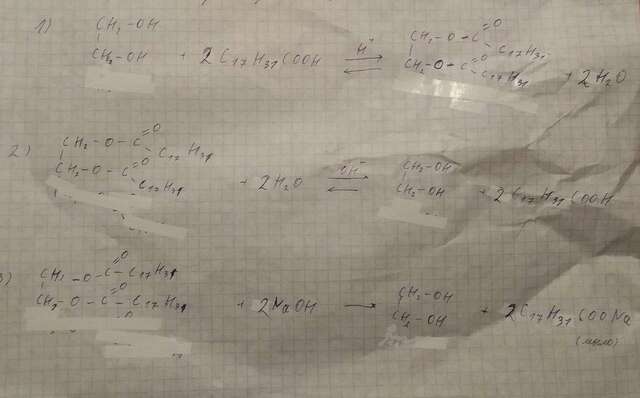 1) CH₂-OH
CH₂-OH + 2C₁₇H₃₁COOH ⇄ H⁺ CH₂-O-C=O C₁₇H₃₁
CH₂-O-C=O C₁₇H₃₁ + 2H₂O
2) CH₂-O-C=O C₁₇H₃₁
CH₂-O-C=O C₁₇H₃₁ + 2H₂O ⇄ OH⁻ CH₂-OH
CH₂-OH + 2C₁₇H₃₁COOH
3) CH₂-O-C=O-C₁₇H₃₁
CH₂-O-C=O-C₁₇H₃₁ + 2NaOH → CH₂-OH
CH₂-OH + 2C₁₇H₃₁COONa
(мыло)